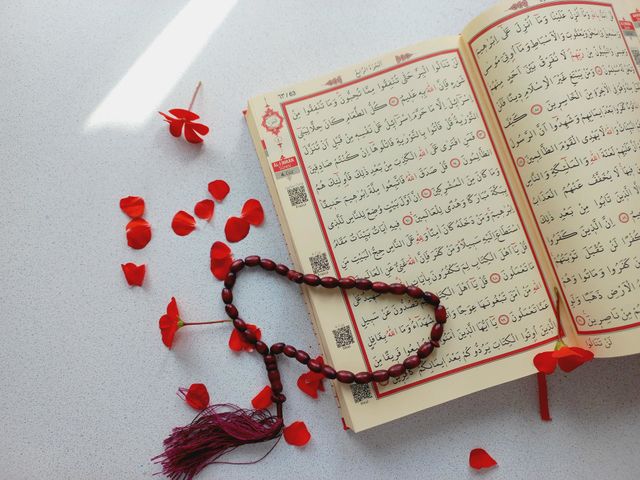 نْزِلَ عَلَيْنَا وَمَٓا اُنْزِلَ عَلٰٓى اِبْرٰه۪يمَ
وَاِسْحٰقَ وَيَعْقُوبَ وَالْاَسْبَاطِ وَمَٓا اُو۫تِيَ مُوسٰى
مِنْ رَبِّهِمْۖ لَا نُفَرِّقُ بَيْنَ اَحَدٍ مِنْهُمْۘ
غَيْرَ الْاِسْلَامِ د۪ينًا فَلَنْ
الْاٰخِرَةِ مِنَ الْخَاسِر۪ينَ
بَعْدَ ا۪يمَانِهِمْ وَشَهِدُٓوا اَنَّ الرَّسُولَ
اللّٰهُ لَا يَهْدِي الْقَوْمَ الظَّالِم۪ينَ
لَعْنَةَ اللّٰهِ وَالْمَلٰٓئِكَةِ وَالنَّاسِ
لَا يُخَفَّفُ عَنْهُمُ الْعَذَابُ
تَابُوا مِنْ بَعْدِ ذٰلِكَ
اِنَّ الَّذ۪ينَ كَفَرُوا
لَنْ تُقْبَلَ
كَفَرُوا وَمَاتُوا وَهُمْ
الْاَرْضِ ذَهَبًا وَلَوِ
مِنْ نَاصِر۪ينَ
لَنْ تَنَالُوا
اَلْجُزْءُ الرَّابِعُ
لَنْ تَنَالُوا الْبِرَّ حَتّٰى تُنْفِقُوا مِمَّا تُحِبُّونَۜ وَمَا تُنْفِقُوا مِنْ
شَيْءٍ فَاِنَّ اللّٰهَ بِه۪ عَل۪يمٌ كُلُّ الطَّعَامِ كَانَ حِلًّا لِبَن۪ٓي
اِسْرَٓائ۪لَ اِلَّا مَا حَرَّمَ اِسْرَٓائ۪لُ عَلٰى نَفْسِه۪ مِنْ قَبْلِ اَنْ تُنَزَّلَ
التَّوْرٰيةُۜ قُلْ فَأْتُوا بِالتَّوْرٰيةِ فَاتْلُوهَٓا اِنْ كُنْتُمْ صَادِق۪ينَ
فَمَنِ افْتَرٰى عَلَى اللّٰهِ الْكَذِبَ مِنْ بَعْدِ ذٰلِكَ فَاُو۬لٰٓئِكَ هُمُ
الظَّالِمُونَ قُلْ صَدَقَ اللّٰهُ فَاتَّبِعُوا مِلَّةَ اِبْرٰه۪يمَ حَن۪يفًاۜ
وَمَا كَانَ مِنَ الْمُشْرِك۪ينَ اِنَّ اَوَّلَ بَيْتٍ وُضِعَ لِلنَّاسِ لَلَّذ۪ي
بِبَكَّةَ مُبَارَكًا وَهُدًى لِلْعَالَم۪ينَ ف۪يهِ اٰيَاتٌ بَيِّنَاتٌ مَقَامُ
اِبْرٰه۪يمَ وَمَنْ دَخَلَهُ كَانَ اٰمِنًاۜ وَلِلّٰهِ عَلَى النَّاسِ حِجُّ الْبَيْتِ مَنِ
اسْتَطَاعَ اِلَيْهِ سَب۪يلًاۜ وَمَنْ كَفَرَ فَاِنَّ اللّٰهَ غَنِيٌّ عَنِ الْعَالَم۪ينَ
قُلْ يَٓا اَهْلَ الْكِتَابِ لِمَ تَكْفُرُونَ بِاٰيَاتِ اللّٰهِ
تَعْمَلُونَ قُلْ يَٓا اَهْلَ الْكِتَابِ لِمَ تَصُدُّونَ عَنْ سَب۪يلِ
اللّٰهِ مَنْ اٰمَنَ تَبْغُونَهَا عِوَجًا وَاَنْتُمْ شُهَدَٓاءُۜ وَمَا اللّٰهُ بِغَافِلٍ
عَمَّا تَعْمَلُونَ يَٓا اَيُّهَا الَّذ۪ينَ اٰمَنُٓوا اِنْ تُط۪يعُوا فَر۪يقًا مِنَ
الَّذ۪ينَ اُو۫تُوا الْكِتَابَ يَرُدُّوكُمْ بَعْدَ ا۪يمَانِكُمْ كَافِر۪ينَ